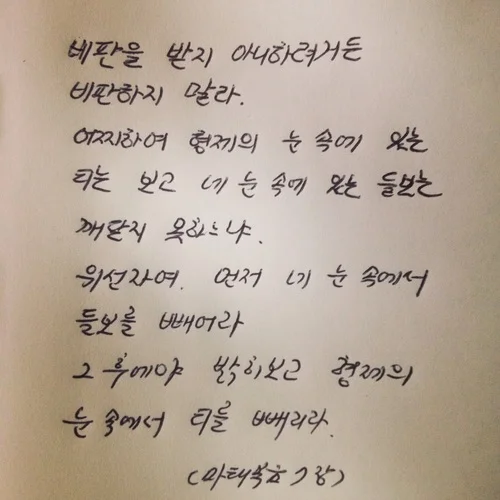 비판을 받지 아니하려거든
비판하지 말라.
어찌하여 형제의 눈 속에 있는
티는 보고 네 눈 속에 있는 들보는
깨닫지 못하느냐.
위선자여. 먼저 네 눈 속에서
들보를 빼어라
그 후에야 밝히보고 형제의
눈 속에서 티를 빼리라.
(마태복음 7장)